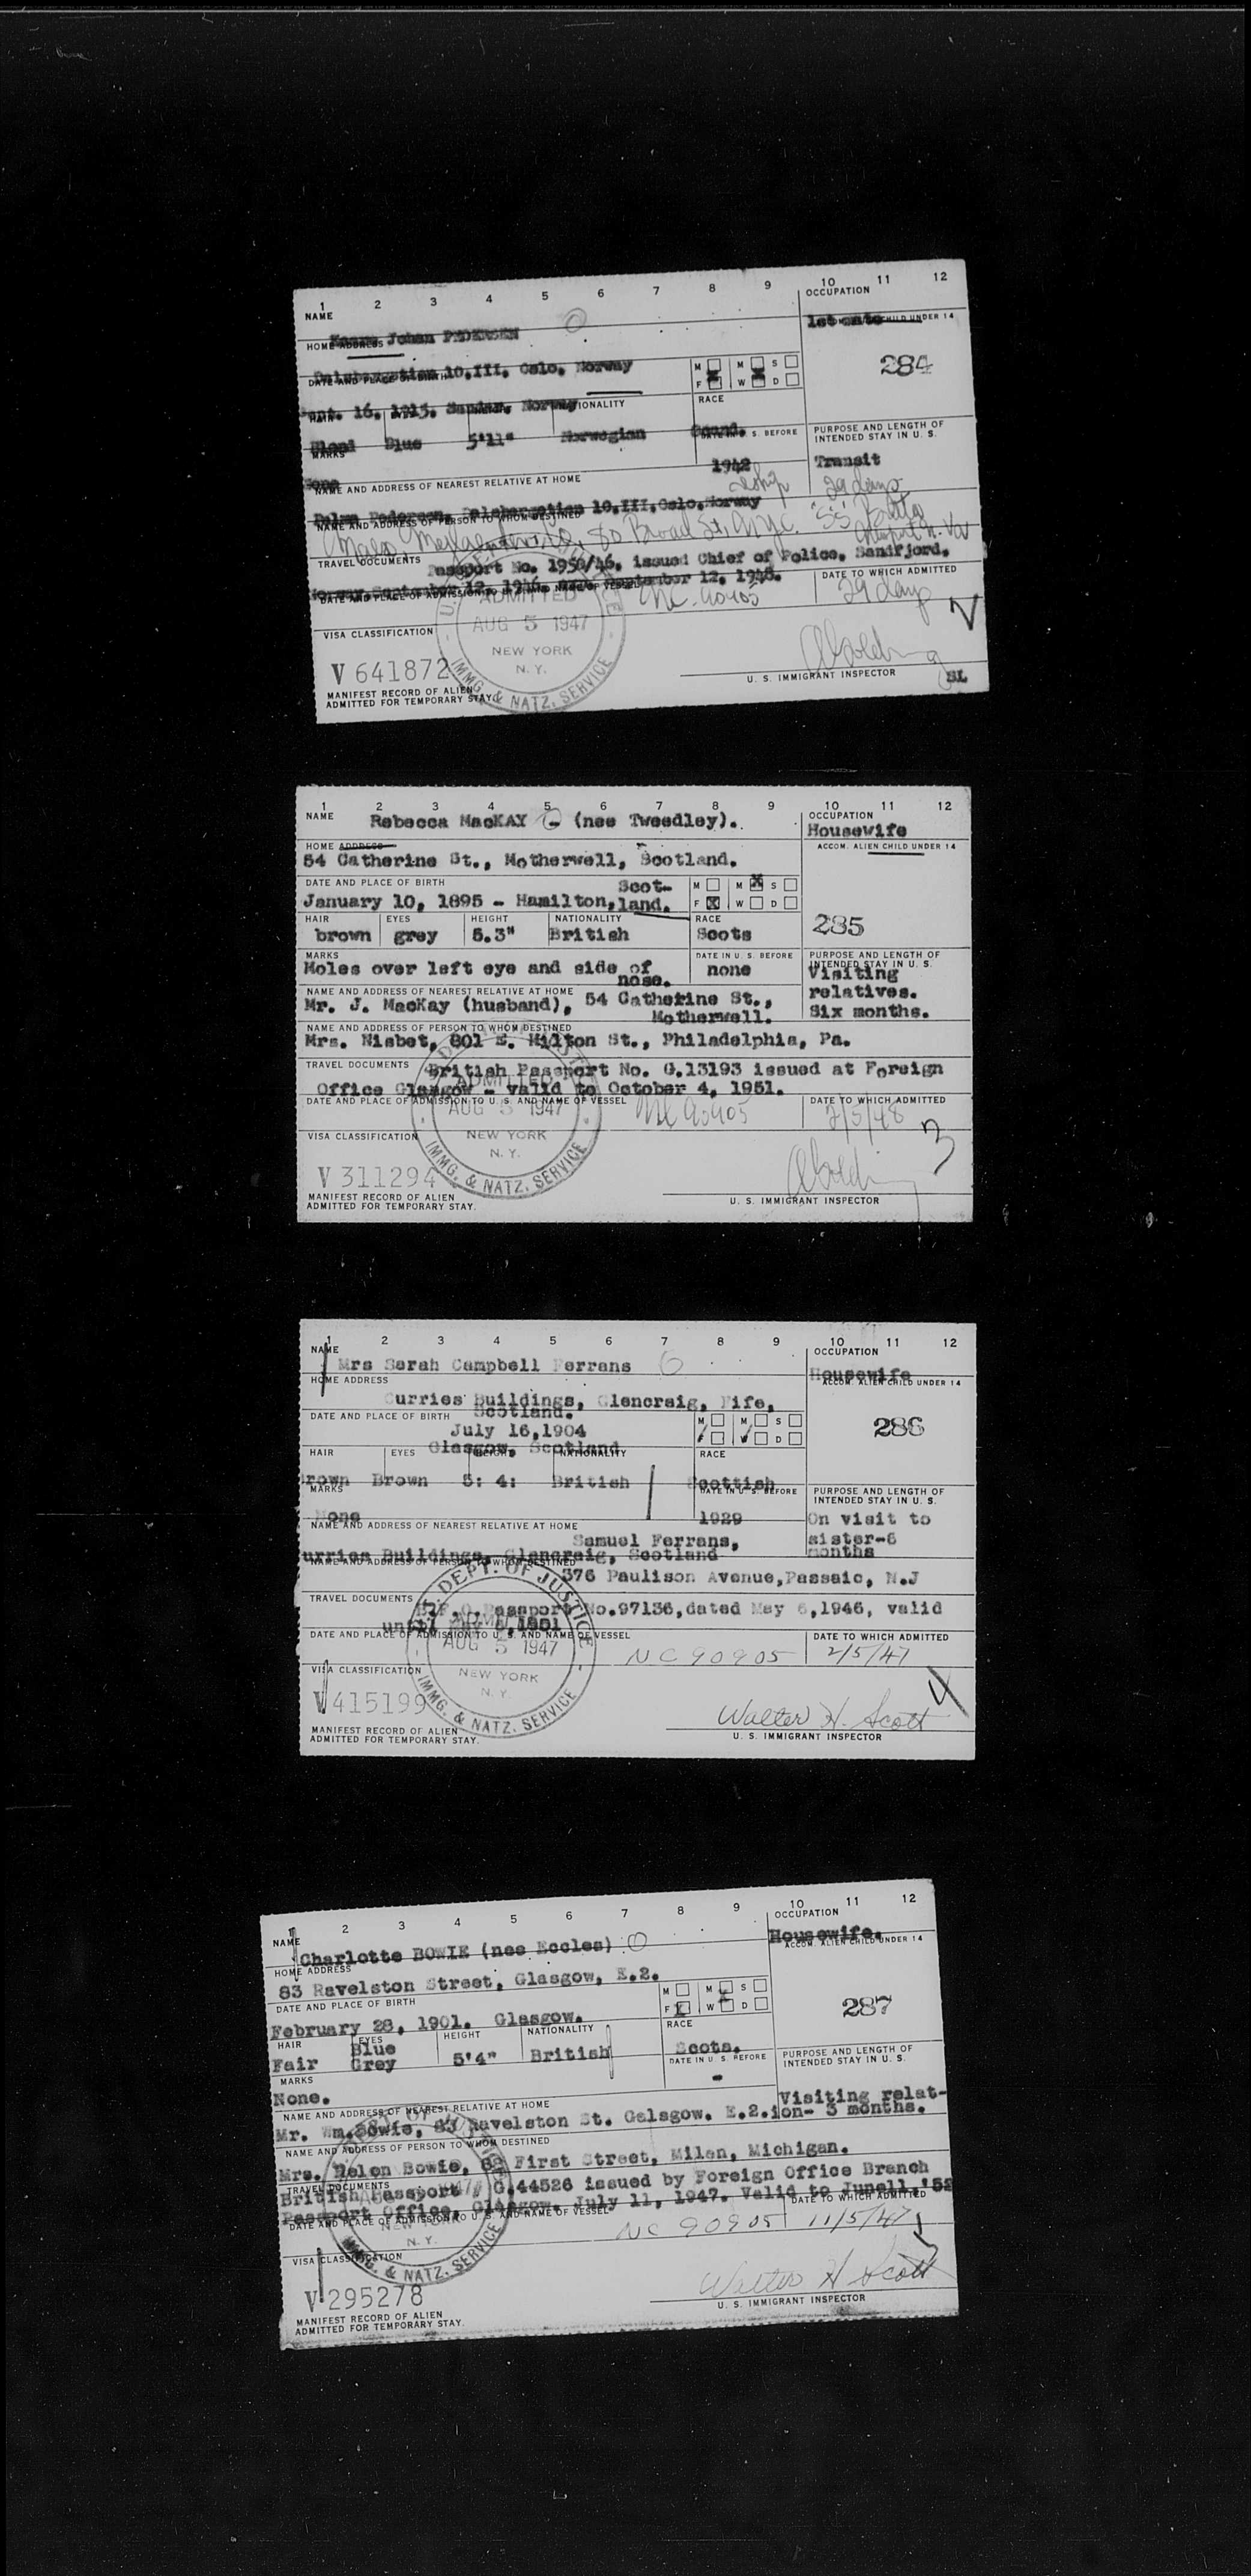 1 2 3 4 5 6 7 8 9 10 11 12
NAME OCCUPATION
Johan PEDERSEN 1st mate
HOME ADDRESS CHILD UNDER 14
10,III, Oslo, Norway
DATE AND PLACE OF BIRTH M M S
F W D
284
16, 1915, Norway
NATIONALITY RACE
Blond Blue 5'11" Norwegian Scand.
MARKS S. BEFORE PURPOSE AND LENGTH OF
INTENDED STAY IN U. S.
None 1942 Transit
NAME AND ADDRESS OF NEAREST RELATIVE AT HOME ship 29 days
Pedersen, 10,III, Oslo, Norway
NAME AND ADDRESS OF PERSON TO WHOM DESTINED
80 Broad St, NYC. "SS"
TRAVEL DOCUMENTS Passport No. 1958/46, issued Chief of Police, Sandfjord,
Norway September 12, 1946, September 12, 1948.
DATE AND PLACE OF ADMISSION TO U. S. AND NAME OF VESSEL DATE TO WHICH ADMITTED
NC. 90905 29 days
ADMITTED
AUG 5 1947
NEW YORK
N. Y.
IMMG. & NATZ. SERVICE
VISA CLASSIFICATION
V 641872
U. S. IMMIGRANT INSPECTOR SL
MANIFEST RECORD OF ALIEN
ADMITTED FOR TEMPORARY STAY.
1 2 3 4 5 6 7 8 9 10 11 12
NAME Rebecca MacKAY - (nee Tweedley). OCCUPATION
Housewife
HOME ADDRESS ACCOM. ALIEN CHILD UNDER 14
54 Catherine St., Motherwell, Scotland.
DATE AND PLACE OF BIRTH Scot- M M X S
January 10, 1895 - Hamilton, land. F X W D
HAIR EYES HEIGHT NATIONALITY RACE 285
brown grey 5.3" British Scots
MARKS DATE IN U. S. BEFORE PURPOSE AND LENGTH OF
INTENDED STAY IN U. S.
Moles over left eye and side of none Visiting
nose.
NAME AND ADDRESS OF NEAREST RELATIVE AT HOME relatives.
Mr. J. MacKay (husband), 54 Catherine St., Six months.
Motherwell.
NAME AND ADDRESS OF PERSON TO WHOM DESTINED
Mrs. Nisbet, 801 E. Hilton St., Philadelphia, Pa.
TRAVEL DOCUMENTS British Passport No. G.13193 issued at Foreign
Office Glasgow - valid to October 4, 1951.
DATE AND PLACE OF ADMISSION TO U. S. AND NAME OF VESSEL DATE TO WHICH ADMITTED
NC 90905 2/5/48
ADMITTED
AUG 5 1947
NEW YORK
N. Y.
IMMG. & NATZ. SERVICE
VISA CLASSIFICATION 3
V 311294
MANIFEST RECORD OF ALIEN
ADMITTED FOR TEMPORARY STAY.
U. S. IMMIGRANT INSPECTOR
1 2 3 4 5 6 7 8 9 10 11 12
NAME OCCUPATION
Mrs Sarah Campbell Ferrans Housewife
HOME ADDRESS ACCOM. ALIEN CHILD UNDER 14
Curries Buildings, Glencraig, Fife,
DATE AND PLACE OF BIRTH Scotland. M M S
July 16,1904 F W D 286
Glasgow, Scotland
HAIR EYES HEIGHT NATIONALITY RACE
Brown Brown 5: 4: British Scottish
MARKS DATE IN U. S. BEFORE PURPOSE AND LENGTH OF
INTENDED STAY IN U. S.
None 1929 On visit to
NAME AND ADDRESS OF NEAREST RELATIVE AT HOME
Samuel Ferrans, sister-6
urries Buildings, Glencraig, Scotland months
NAME AND ADDRESS OF PERSON TO WHOM DESTINED
376 Paulison Avenue,Passaic, N.J
TRAVEL DOCUMENTS Passport No.97136,dated May 6,1946, valid
until 1951
DATE AND PLACE OF ADMISSION TO U. S. AND NAME OF VESSEL DATE TO WHICH ADMITTED
NC 90905 2/5/47
DEPT. OF JUSTICE
ADMITTED
AUG 5 1947
NEW YORK
N. Y.
IMMG. & NATZ. SERVICE
VISA CLASSIFICATION 4
V 415199
Walter H. Scott
MANIFEST RECORD OF ALIEN
ADMITTED FOR TEMPORARY STAY.
U. S. IMMIGRANT INSPECTOR
1 2 3 4 5 6 7 8 9 10 11 12
NAME OCCUPATION
Charlotte BOWIE (nee Eccles) Housewife.
HOME ADDRESS ACCOM. ALIEN CHILD UNDER 14
83 Ravelston Street, Glasgow, E.2.
DATE AND PLACE OF BIRTH M M S
F W D
February 28, 1901. Glasgow. 287
HAIR EYES HEIGHT NATIONALITY RACE
Blue
Fair Grey 5'4" British Scots.
MARKS DATE IN U. S. BEFORE PURPOSE AND LENGTH OF
INTENDED STAY IN U. S.
None. -
NAME AND ADDRESS OF NEAREST RELATIVE AT HOME Visiting relat-
Mr. Wm.Bowie, 83 Ravelston St. Galsgow. E.2. ion- 3 months.
NAME AND ADDRESS OF PERSON TO WHOM DESTINED
Mrs. Helen Bowie, 62 First Street, Milan, Michigan.
TRAVEL DOCUMENTS
British Passport # G.44526 issued by Foreign Office Branch
Passport Office, Glasgow. July 11, 1947. Valid to June11,'52
DATE AND PLACE OF ADMISSION TO U. S. AND NAME OF VESSEL DATE TO WHICH ADMITTED
NC 90905 11/5/47
NEW YORK
N. Y.
IMMG. & NATZ. SERVICE
VISA CLASSIFICATION 5
V 295278
Walter H Scott
MANIFEST RECORD OF ALIEN
ADMITTED FOR TEMPORARY STAY.
U. S. IMMIGRANT INSPECTOR